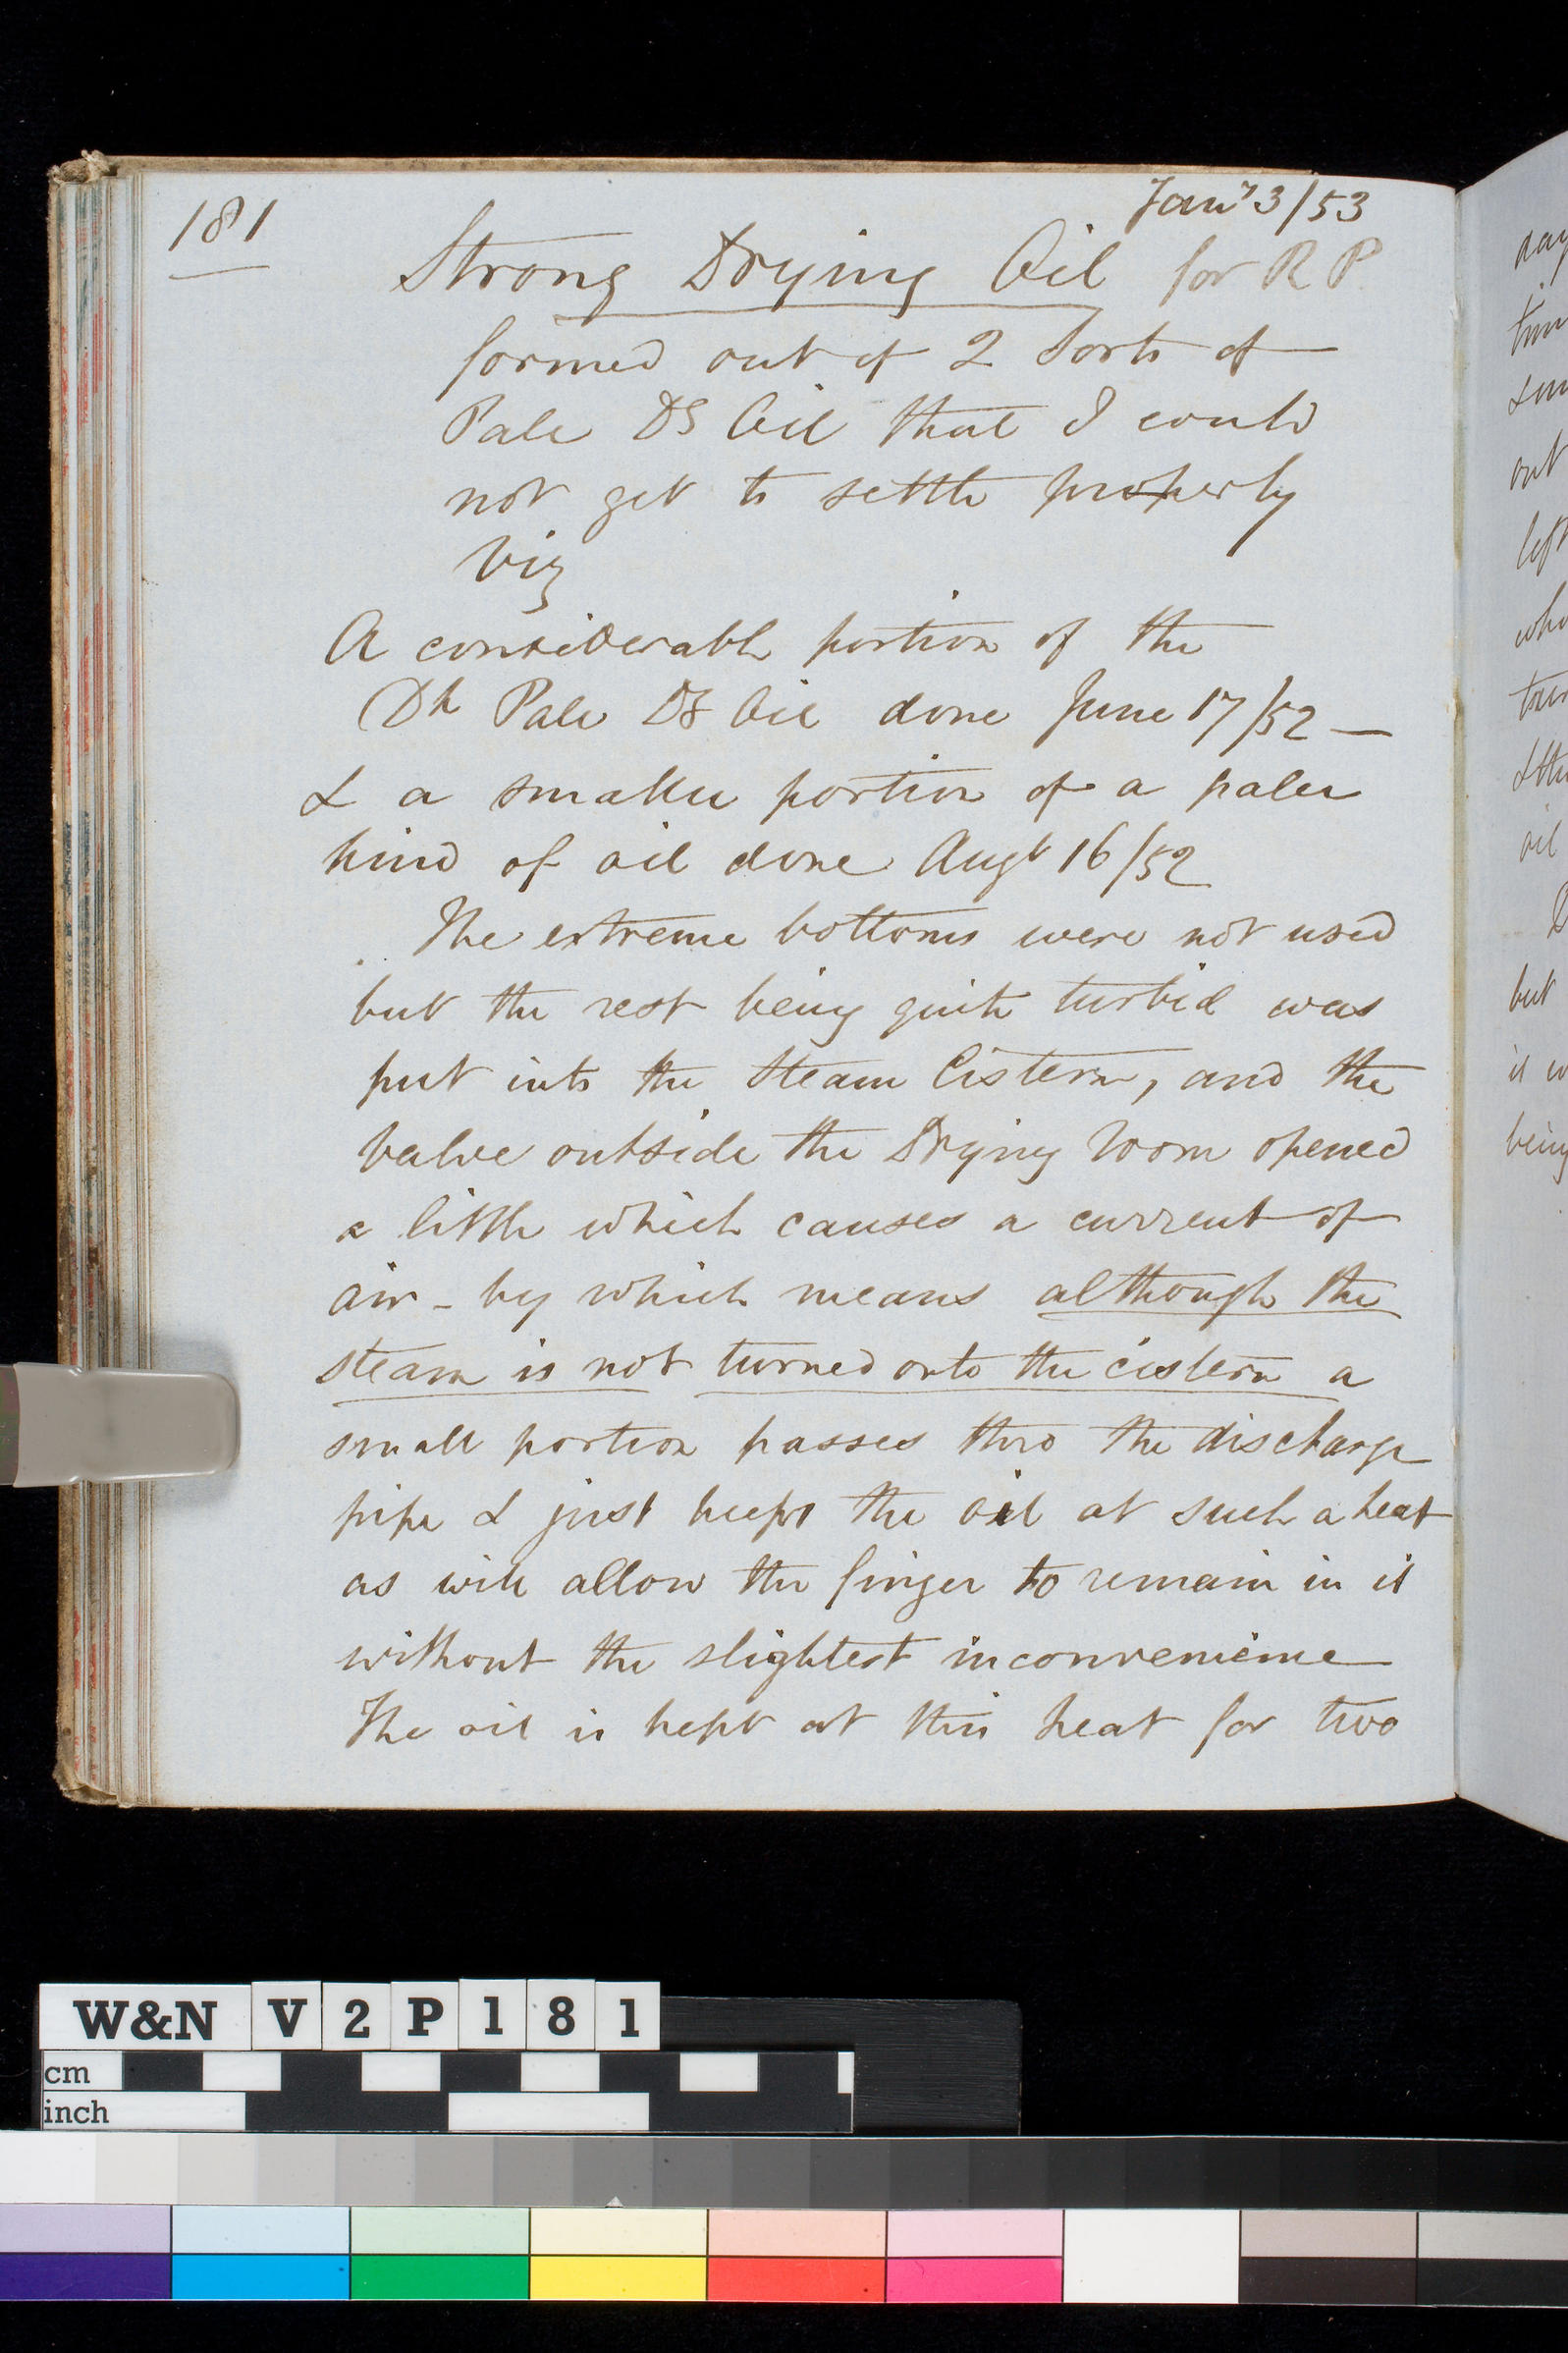 Jany 3/53
181
Strong Drying Oil for R P
formed out of 2 Sorts of
Pale DG Oil that I could
not get to settle properly
Viz
A considerable portion of the
Pale DG Oil done June 17/52 —
& a smaller portion of a paler
kind of oil done Augt 16/52
The extreme bottoms were not used
but the rest being quite turbid was
put into the Steam Cistern, and the
valve outside the Drying Room opened
a little which causes a current of
air - by which means although the
steam is not turned onto the cistern a
small portion passes thro the discharge
pipe & just keeps the oil at such a heat
as will allow the finger to remain in it
without the slightest inconvenience
The oil is kept at this heat for two
out
left
oil
but
being
W&N V2P181
cm
inch